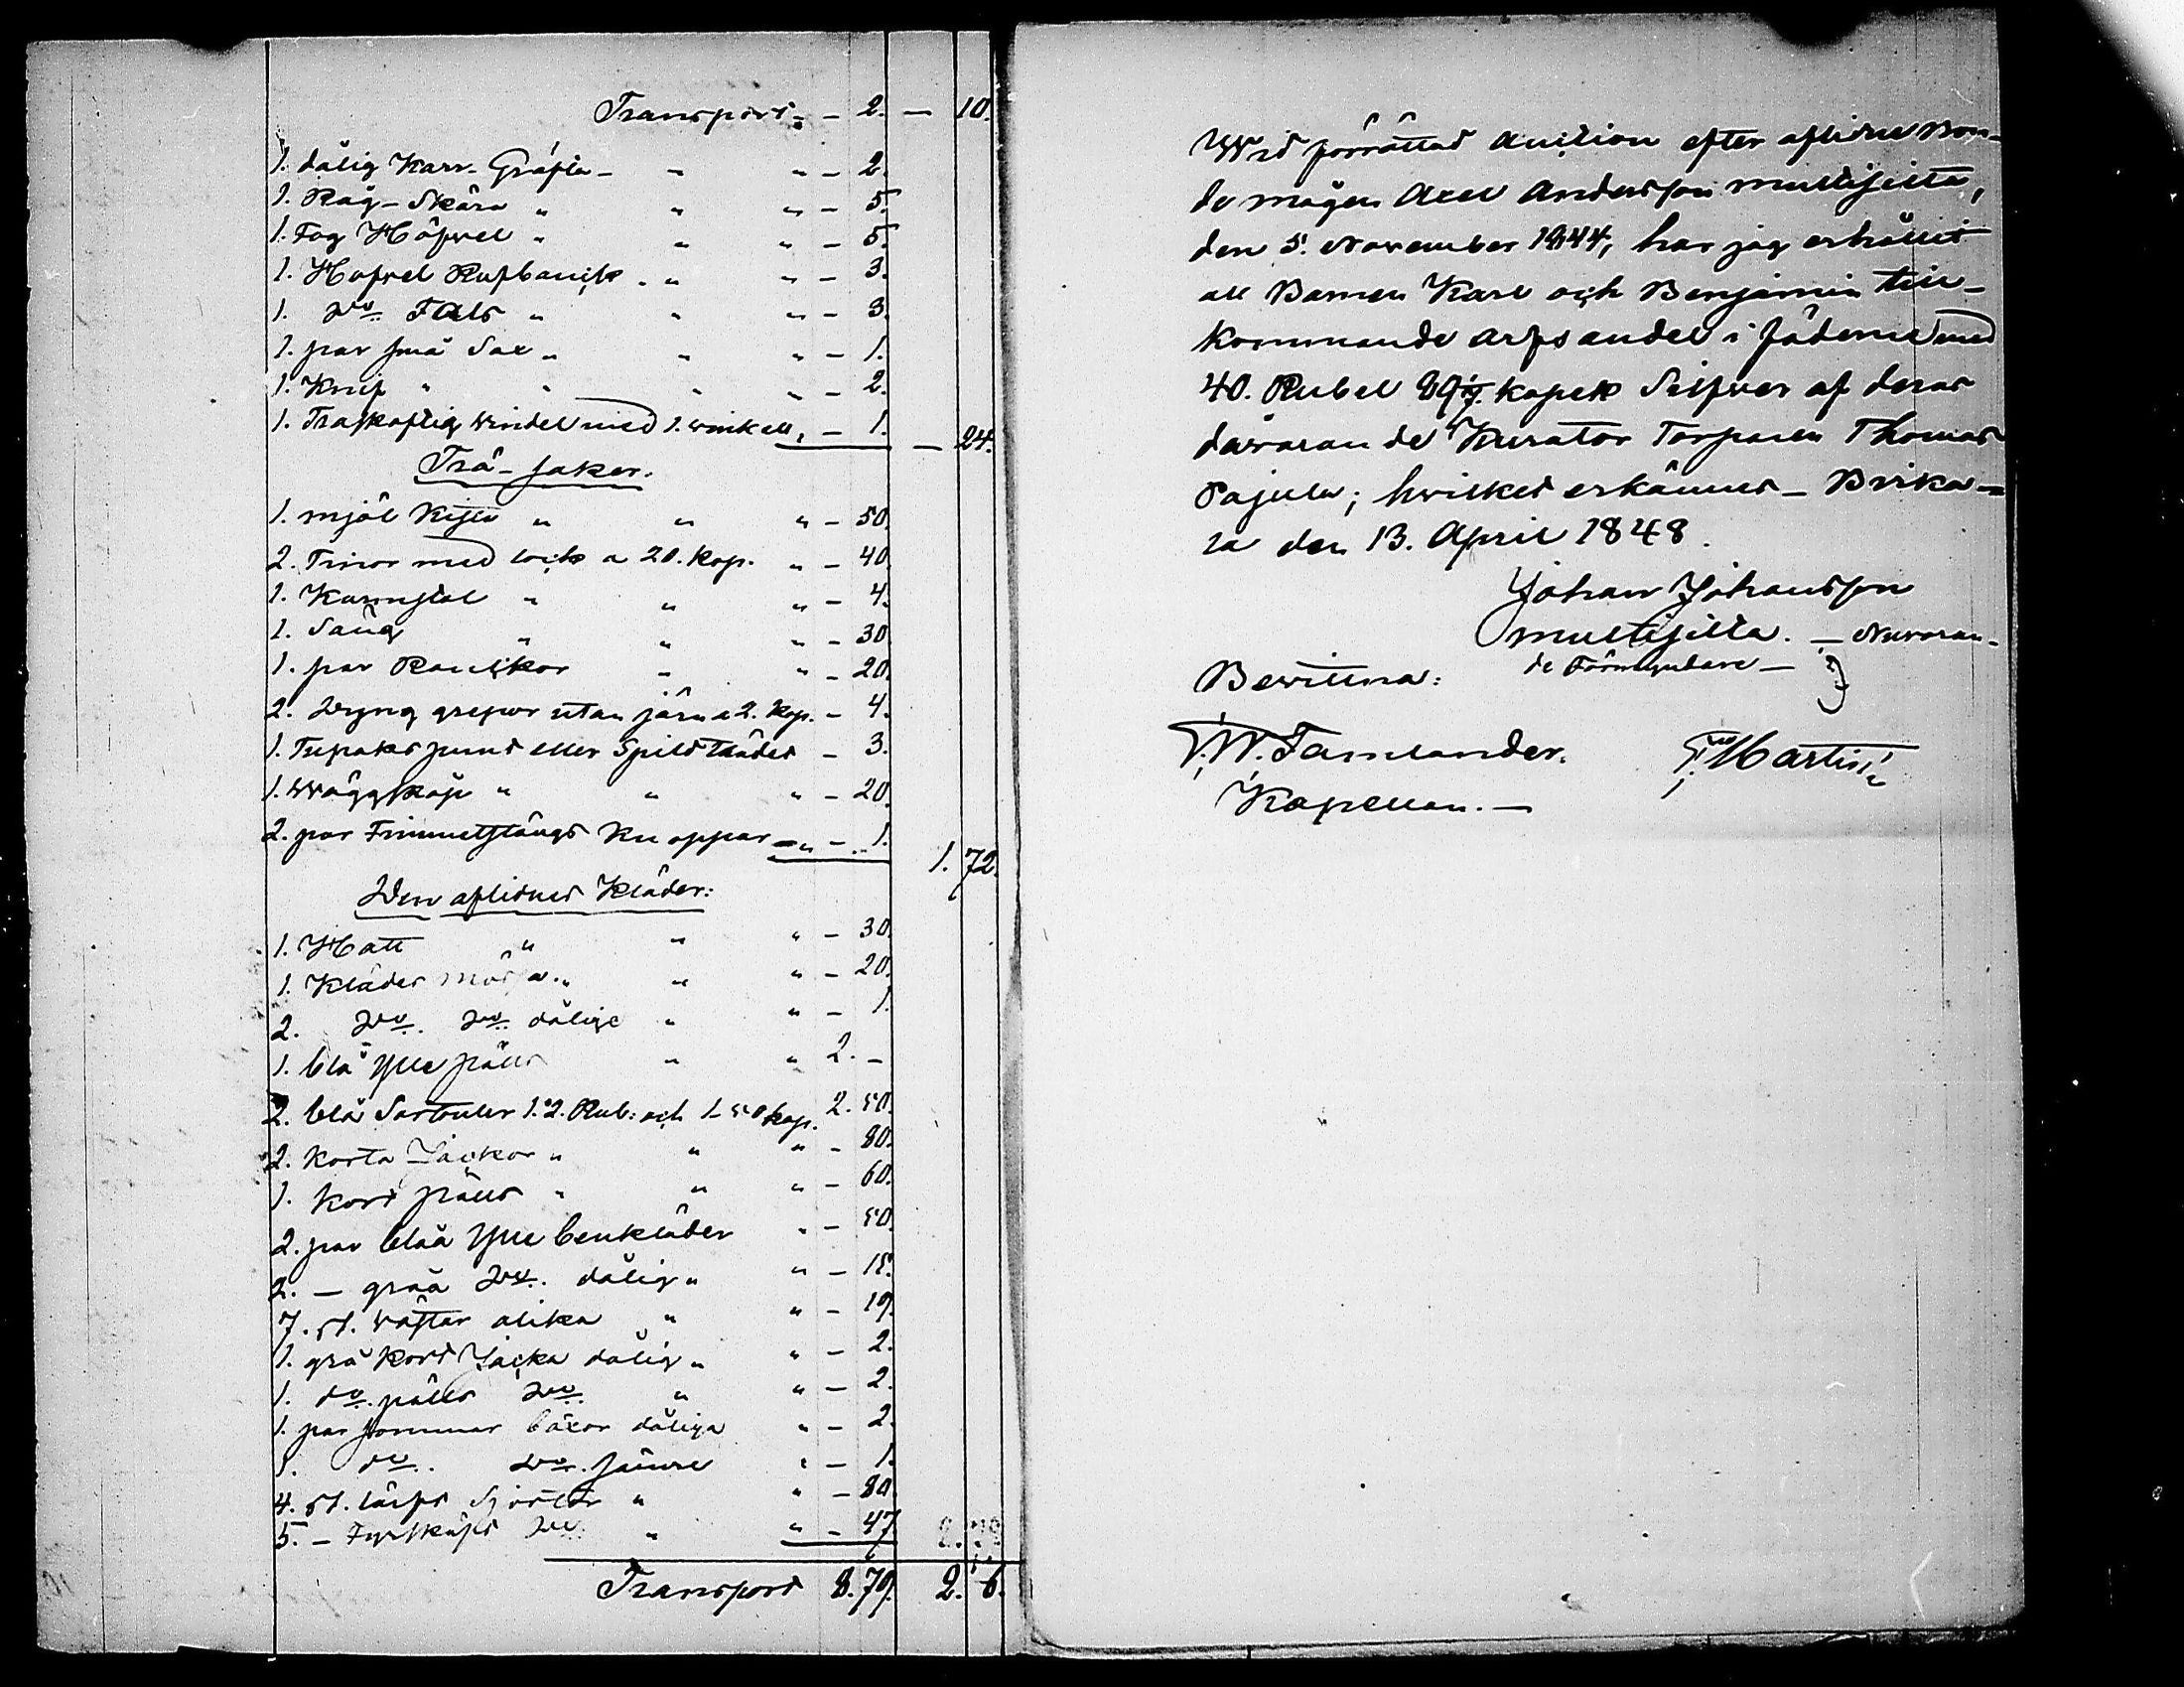 Transport „ – 2. – 10.
1. dålig Karr-Gräfta – „ „ – 2.
1. Råg-Skära „ „ „ – 5.
1. Fog Höfvel „ „ „ – 5.
1. Hofvel Rufbanck „ „ „ – 3.
1. Do Fals „ „ „ – 3.
1. par små Sax „ „ „ – 1.
1. Knif „ „ „ „ – 2.
1. windel med 1. winkell „ – 1. – 24.
Trä-saker.
1. mjöl Kista „ „ „ – 50.
2. Tinor med lock a 20. kop. „ – 40.
1. Karmstol „ „ „ – 4.
1. Säng „ „ „ – 30
1. par „ – 20.
2. Dyng grepar utan järn a 2. kop. – 4.
1. eller – 3.
1. Wäggskåp „ „ „ – 20.
2. par Knappar – „ – 1. 1. 72.
Den aflidnes Kläder:
1. Hatt „ „ „ – 30.
1. Klädes Mössa „ „ „ – 20.
2. Do. Do dålige „ „ – 1.
1. blå Ylle päls „ „ 2. –
2. blå Sortuter 1. a 2. Rub: och 1–50 kop. 2. 50.
2. korta Jackor „ „ „ – 80.
1. kort päls „ „ „ – 60.
2. par blåa Ylle benkläder „ – 50.
2. – gråa Do. dålig „ „ – 15.
7. st. wästar olika „ „ – 19.
1. grå kort Jacka dålig „ „ – 2.
1. do. päls Do „ „ – 2.
1. par sommar båxor dåliga „ – 2.
1. do. Do. sämre „ – 1.
4. st. lärfts Sjortor „ „ – 80.
5. – Do „ „ – 47
Transport 8. 79. 2. 6.
Wid förrättad Auction efter aflidne Bon-
de mågen Axel Andersson Multisilta,
den 5. November 1844, har jag erhållit
all Barnen Karl och Benjamin till-
kommande arfs andel i fäderne med
40. Rubel kopek Silfwer af deras
dåvarande Kurator Torparen Thomas
Pajula; hvilket erkännes – Brika-
la den 13. April 1848.
Johan Johansson
Multisilla. – Nuvaran-
de Förmyndare –
Bevittna:
Tamlander. Martin
Kapellan. –